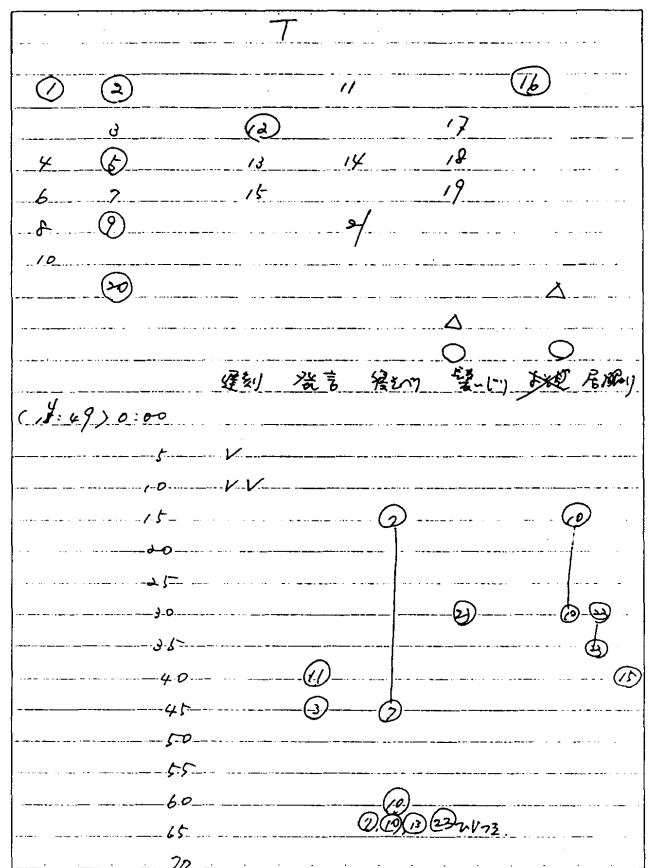 T
① ② 11 ⑯
3 ⑫ 17
4 ⑤ 13 14 18
6 7 15 19
8 ⑨ 21
10
⑳ △
△
○ ○
遅刻 発言 寝そべり 髪いじり 居眠り
0:00
5 ✓
10 ✓✓
15 ⑦ ⑩
20
25
30 ㉑ ⑩ ㉓
35 ㉓
40 ⑪ ⑮
45 ③ ⑦
50
55
60 ⑩
65 ⑦ ⑩ ⑬ ㉓
70